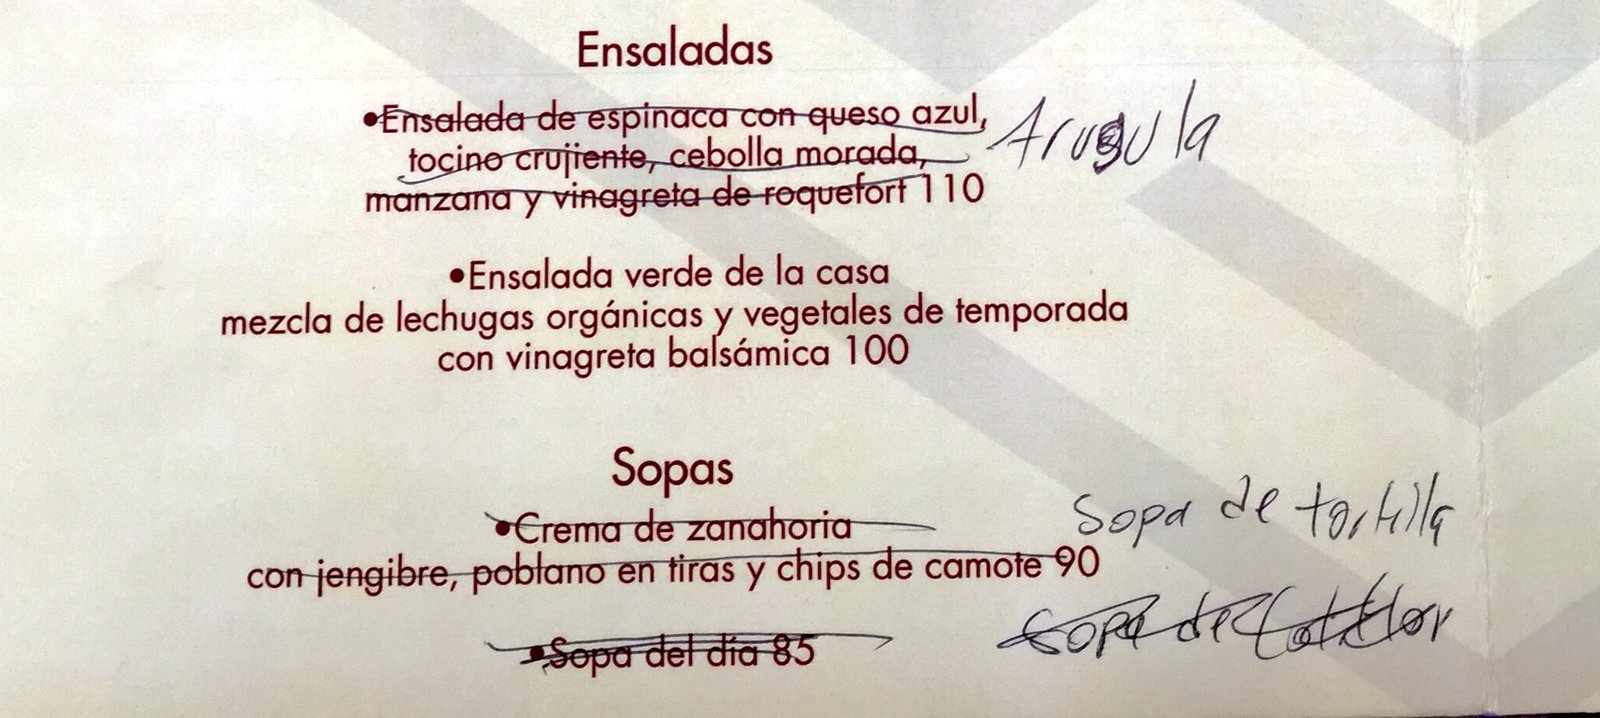 Ensaladas
•Ensalada de espinaca con queso azul,
tocino crujiente, cebolla morada,
manzana y vinagreta de roquefort 110
Arugula
•Ensalada verde de la casa
mezcla de lechugas orgánicas y vegetales de temporada
con vinagreta balsámica 100
Sopas
•Crema de zanahoria
con jengibre, poblano en tiras y chips de camote 90
Sopa de tortilla
•Sopa del día 85
Sopa de